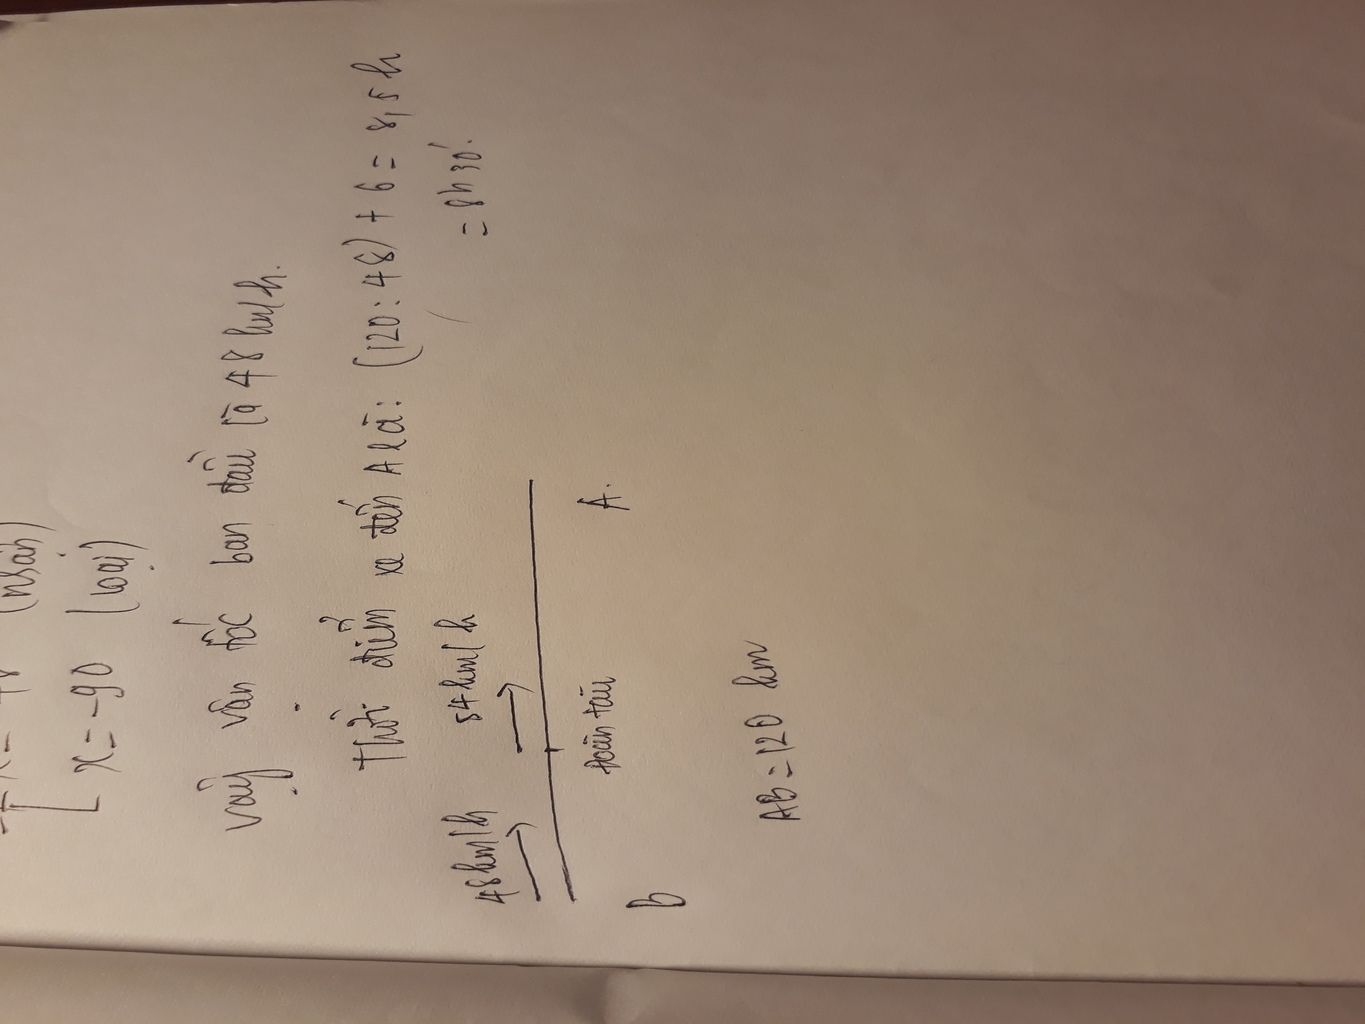 x = -90 (loại)
vậy vận tốc ban đầu là 48 km/h.
Thời điểm xe đến A là: (120 : 48) + 6 = 8,5 h
= 8h 30'.
48km/h 54km/h
B Đoàn tàu A.
AB = 120 km